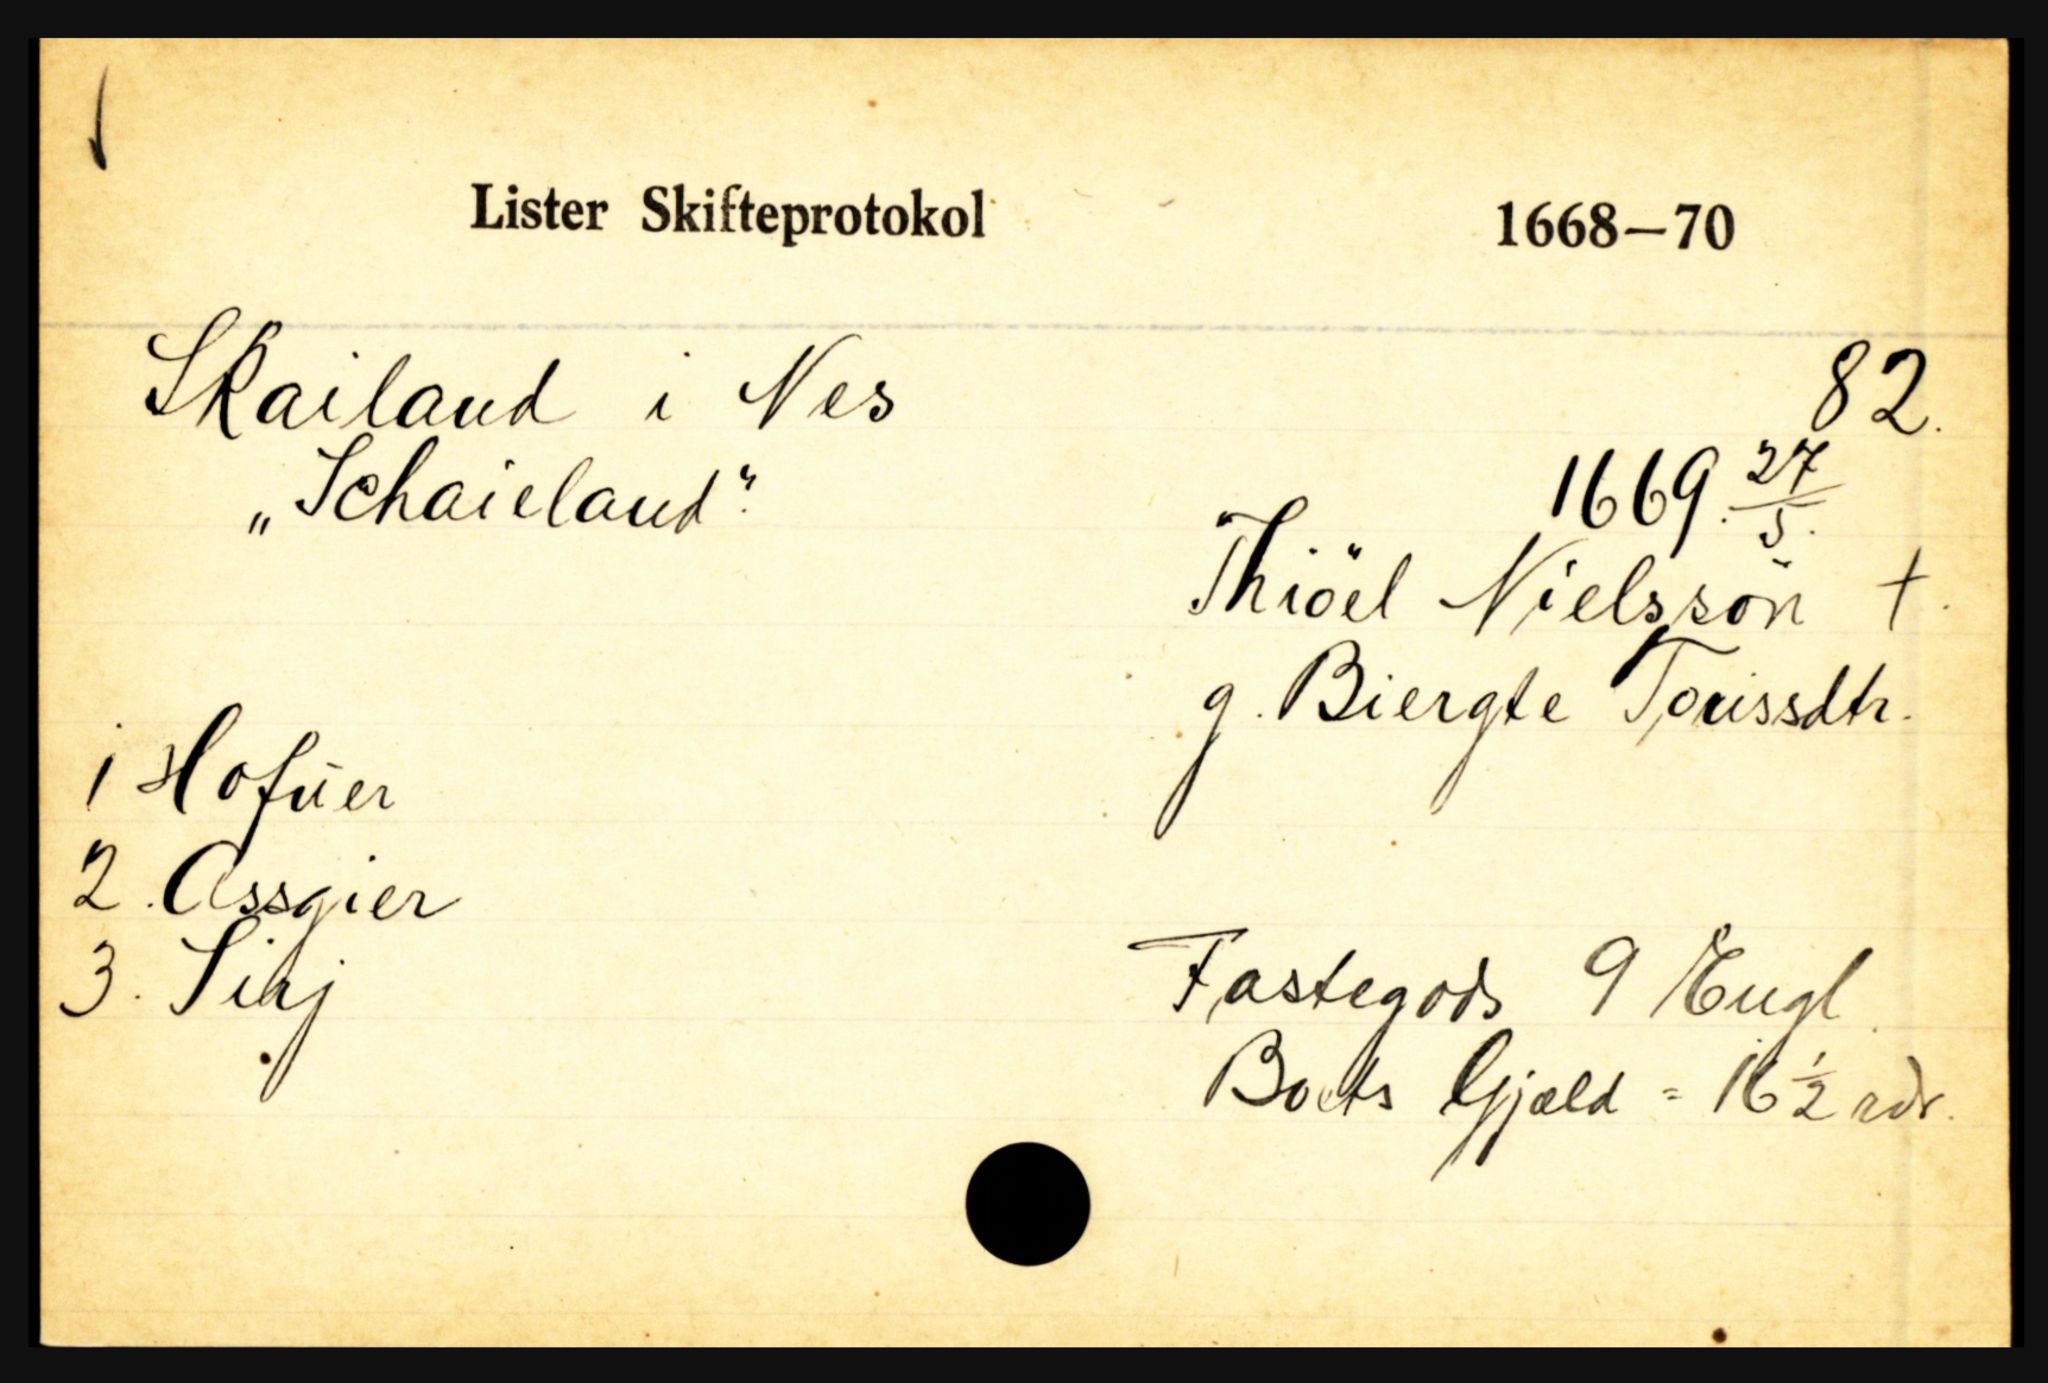 Lister Skifteprotokol 1668—70
Skailand i Nes 82.
„Schaieland“. 1669. 27/5.
Thiöel Nielssön †.
g. Biergte Torissdtr.
1 Hofuer
2. Assgier
3. Sirj
Fastegods 9 Eugl.
Boets Gjæld = 16 1/2 rdr.